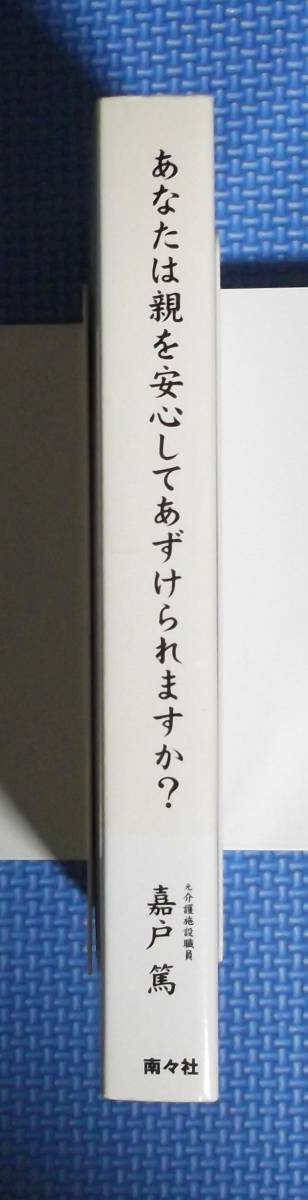 あなたは親を安心してあずけられますか?
元介護施設職員
嘉戸 篤
南々社